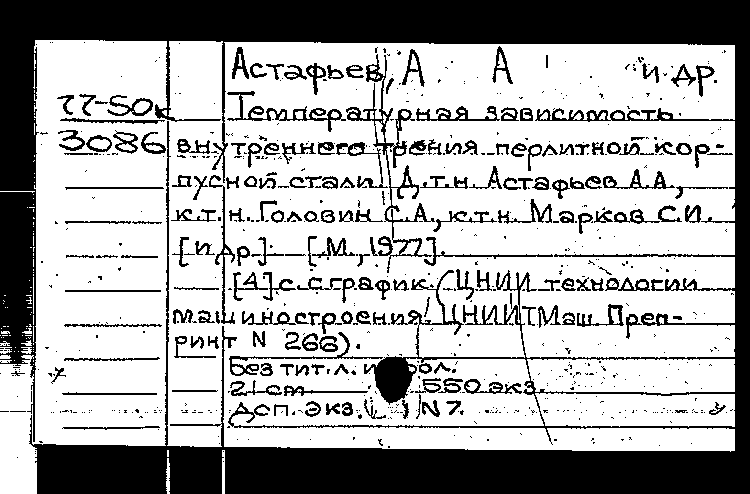 Астафьев, А А и др.
77-50к
Температурная зависимость
3086
внутреннего трения перлитной кор-
пусной стали. Д.т.н. Астафьев А.А.,
к.т.н. Головин С.А., к.т.н. Марков С.И.
[и др.]. [М., 1977].
[4] с. с график. (ЦНИИ технологии
машиностроения. ЦНИИТМаш. Преп-
ринт N 266).
Без тит. л. и обл.
21 cm 550 экз.
Дсп. экз. ( ) N 7.